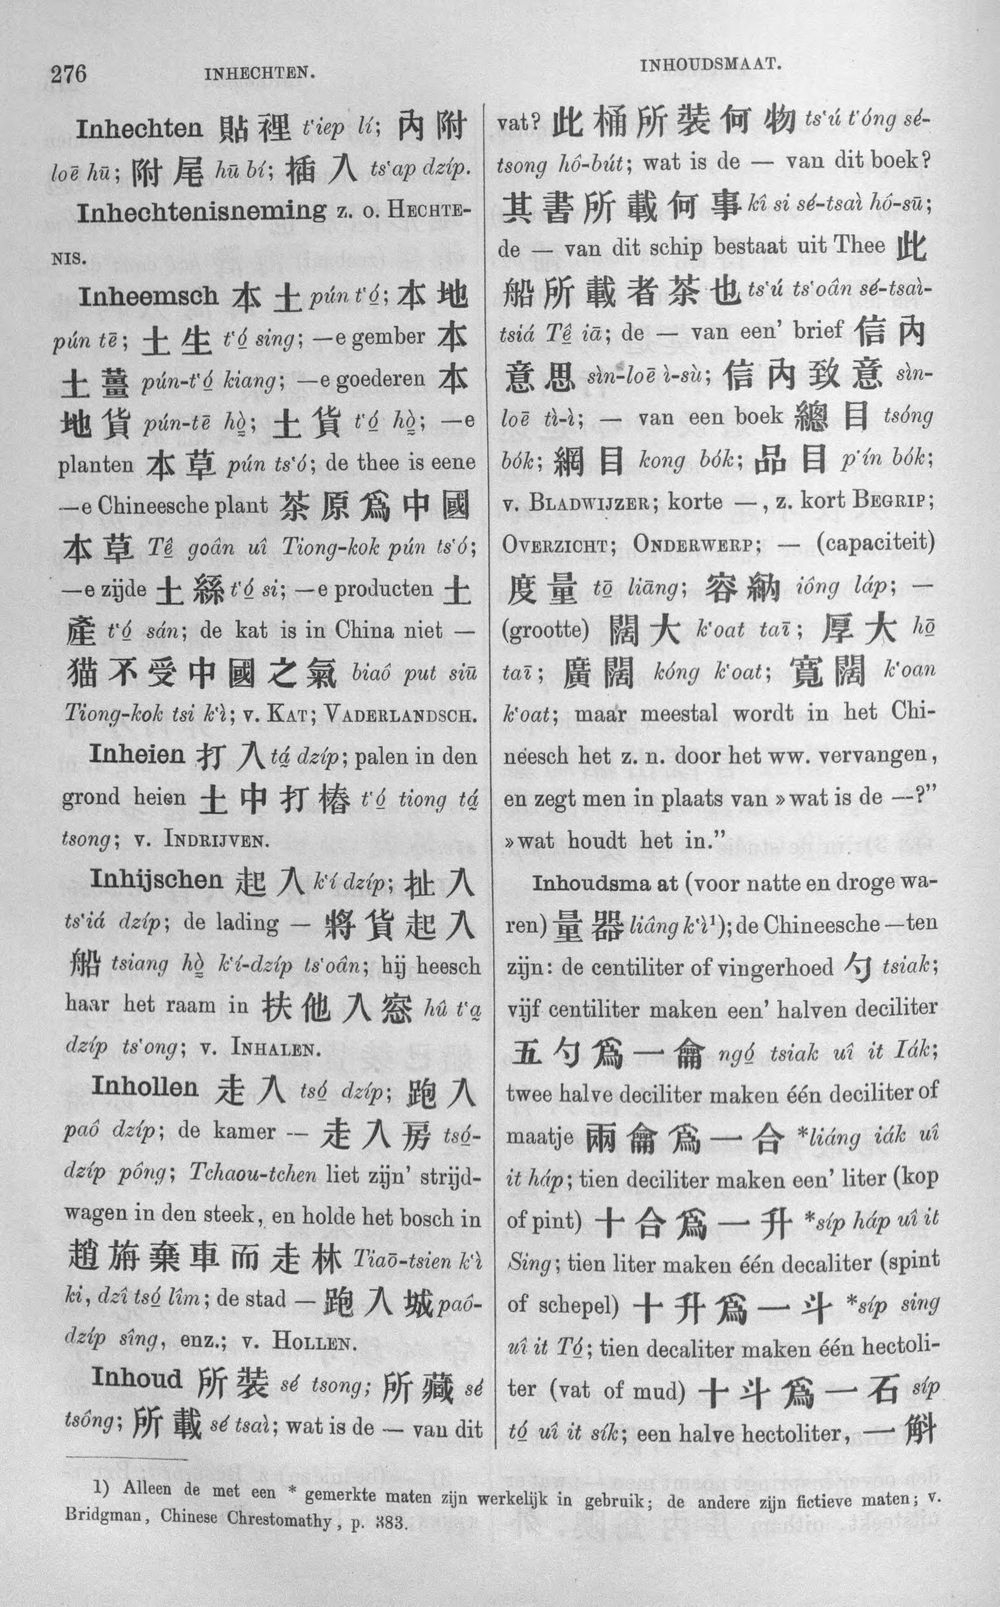 276
INHECHTEN.
INHOUDSMAAT.
Inhechten 貼裡 t‘iep lí; 內附
loē hū; 附尾 hū bí; 插入 ts‘ap dzíp.
Inhechtenisneming z. o. HECHTE-
NIS.
Inheemsch 本土 pún t‘ó̱; 本地
pún tē; 土生 t‘ó̱ sing; —e gember 本
土薑 pún-t‘ó̱ kiang; —e goederen 本
地貨 pún-tē hò̱; 土貨 t‘ó̱ hò̱; —e
planten 本草 pún ts‘ó; de thee is eene
—e Chineesche plant 茶原爲中國
本草 Tê̱ goân uî Tiong-kok pún ts‘ó;
—e zijde 土絲 t‘ó̱ si; —e producten 土
產 t‘ó̱ sán; de kat is in China niet —
猫不受中國之氣 biaô put siū
Tiong-kok tsi k‘ì; v. KAT; VADERLANDSCH.
Inheien 打入 tá̱ dzíp; palen in den
grond heien 土中打樁 t‘ó̱ tiong tá̱
tsong; v. INDRIJVEN.
Inhijschen 起入 k‘í dzíp; 扯入
ts‘iá dzíp; de lading — 將貨起入
船 tsiang hò̱ k‘í-dzíp ts‘oân; hij heesch
haar het raam in 扶他入窓 hû t‘a̱
dzíp ts‘ong; v. INHALEN.
Inhollen 走入 tsó̱ dzíp; 跑入
paô dzíp; de kamer — 走入房 tsó̱-
dzíp pông; Tchaou-tchen liet zijn’ strijd-
wagen in den steek, en holde het bosch in
趙旃棄車而走林 Tiaō-tsien k‘ì
ki, dzî tsó̱ lîm; de stad — 跑入城 paô-
dzíp sîng, enz.; v. HOLLEN.
Inhoud 所裝 sé tsong; 所藏 sé
tsông; 所載 sé tsaì; wat is de — van dit
vat? 此桶所裝何物 ts‘ú t‘óng sé-
tsong hô-bút; wat is de — van dit boek?
其書所載何事 kî si sé-tsaì hô-sū;
de — van dit schip bestaat uit Thee 此
船所載者茶也 ts‘ú ts‘oân sé-tsaì-
tsiá Tê̱ iā; de — van een’ brief 信內
意思 sìn-loē ì-sù; 信內致意 sìn-
loē tì-ì; — van een boek 總目 tsóng
bók; 網目 kong bók; 品目 p‘ín bók;
v. BLADWIJZER; korte —, z. kort BEGRIP;
OVERZICHT; ONDERWERP; — (capaciteit)
度量 tō̱ liāng; 容納 iông láp; —
(grootte) 闊大 k‘oat taī; 厚大 hō̱
taī; 廣闊 kóng k‘oat; 寬闊 k‘oan
k‘oat; maar meestal wordt in het Chi-
neesch het z. n. door het ww. vervangen,
en zegt men in plaats van »wat is de —?”
»wat houdt het in.”
Inhoudsmaat (voor natte en droge wa-
ren) 量器 liâng k‘ì¹); de Chineesche —ten
zijn: de centiliter of vingerhoed 勺 tsiak;
vijf centiliter maken een’ halven deciliter
五勺爲一龠 ngó̱ tsiak uî it Iák;
twee halve deciliter maken één deciliter of
maatje 兩龠爲一合 *liáng iák uî
it háp; tien deciliter maken een’ liter (kop
of pint) 十合爲一升 *síp háp uî it
Sing; tien liter maken één decaliter (spint
of schepel) 十升爲一斗 *síp sing
uî it Tó̱; tien decaliter maken één hectoli-
ter (vat of mud) 十斗爲一石 síp
tó̱ uî it sík; een halve hectoliter, 一斛
1) Alleen de met een * gemerkte maten zijn werkelijk in gebruik; de andere zijn fictieve maten; v.
Bridgman, Chinese Chrestomathy, p. 383.